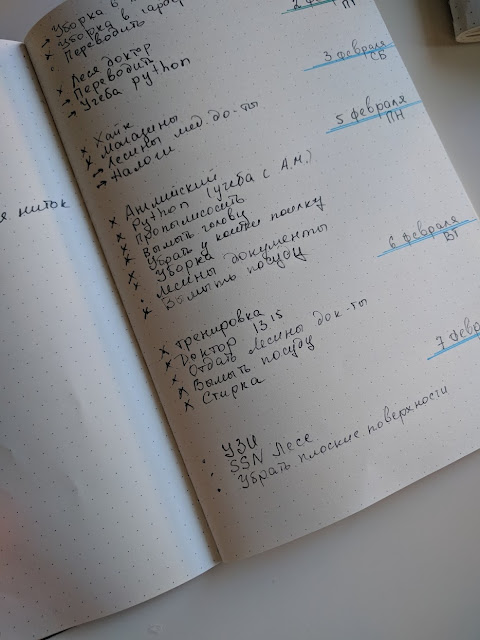 я. ниток
→ Уборка в
→ Уборка в гардер
• Переводить
2 февр
ПТ
× Леся доктор
→ Переводить
→ Учеба python
3 февраля
СБ
× Хайк
× Магазины
→ Лесины мед. до-ты
→ Налоги
5 февраля
ПН
× Английский
× Python (учеба с А.М.)
× Пропылесосить
× Вымыть голову
× Убрать у кошки посылку
× Уборка
• Лесины документы
× Вымыть посуду
6 февраля
ВТ
× Тренировка
× Доктор 13.15
× Отдать Лесины док-ты
× Вымыть посуду
× Стирка
7 февр
• УЗИ
• SSN Лесе
• Убрать плоские поверхности